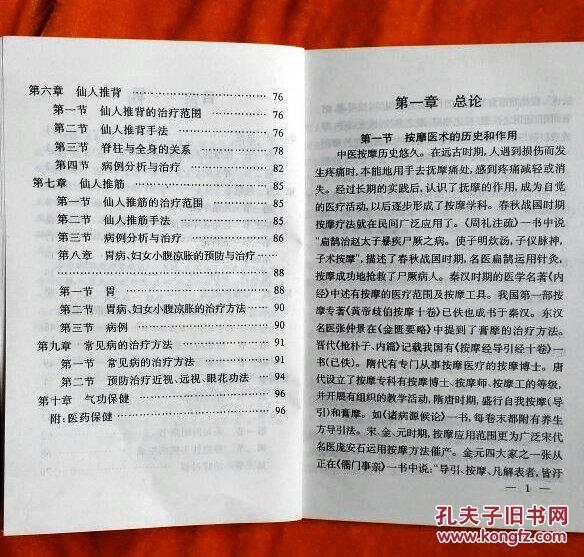 第六章 仙人推背 …………………… 76
第一节 仙人推背的治疗范围 …………… 76
第二节 仙人推背手法 …………………… 76
第三节 脊柱与全身的关系 ……………… 78
第四节 病例分析与治疗 ………………… 82
第七章 仙人推筋 …………………… 85
第一节 仙人推筋的治疗范围 …………… 85
第二节 仙人推筋手法 …………………… 85
第三节 病例分析与治疗 ………………… 86
第八章 胃病、妇女小腹凉胀的预防与治疗 ……
…………………… 88
第一节 胃 …………………… 88
第二节 胃病、妇女小腹凉胀的治疗方法 … 90
第三节 病例 …………………… 90
第九章 常见病的治疗方法 …………… 91
第一节 常见病的治疗方法 …………… 91
第二节 预防治疗近视、远视、眼花功法 … 94
第十章 气功保健 …………………… 96
附:医药保健 …………………… 96
第一章 总论
第一节 按摩医术的历史和作用
中医按摩历史悠久。在远古时期,人遇到损伤而发
生疼痛时,本能地用手去抚摩痛处,感到疼痛减轻或消
失。经过长期的实践后,认识了抚摩的作用,成为自觉
的医疗活动,以后逐步形成了按摩学科。春秋战国时期
按摩疗法就在民间广泛应用了。《周礼注疏》一书中说
“扁鹊治赵太子暴疾尸厥之病。使子明炊汤,子仪脉神,
子术按摩”,描述了春秋战国时期,名医扁鹊运用针灸、
按摩成功地抢救了尸厥病人。秦汉时期的医学名著《内
经》中述有按摩的医疗范围及按摩工具。我国第一部按
摩专著《黄帝歧伯按摩十卷》已佚也成书于秦汉。东汉
名医张仲景在《金匮要略》中提到了膏摩的治疗方法。
晋代《抱朴子、内篇》记载我国有《按摩经导引经十卷》一
书(已佚)。隋代有专门从事按摩医疗的按摩博士。唐
代设立了按摩专科有按摩博士、按摩师、按摩工的等级,
并开展有组织的教学活动,隋唐时期,盛行自我按摩(导
引)和膏摩。如《诸病源候论》一书,每卷末都附有养生
方导引法。宋、金、元时期,按摩应用范围更为广泛宋代
名医庞安石运用按摩方法催产。金元四大家之一张从
正在《儒门事亲》一书中说:“导引、按摩、凡解表者,皆汗
— 1 —
孔夫子旧书网
www.kongfz.com